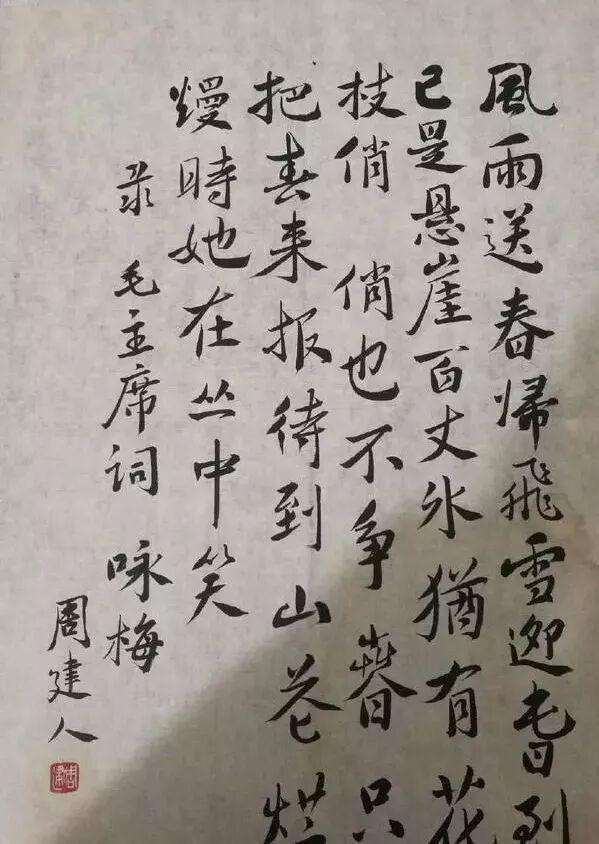 風雨送春歸飛雪迎春到
已是悬崖百丈氷猶有花
枝俏 俏也不争春只
把春来报待到山花烂
熳時她在丛中笑
录 毛主席词 咏梅
周建人